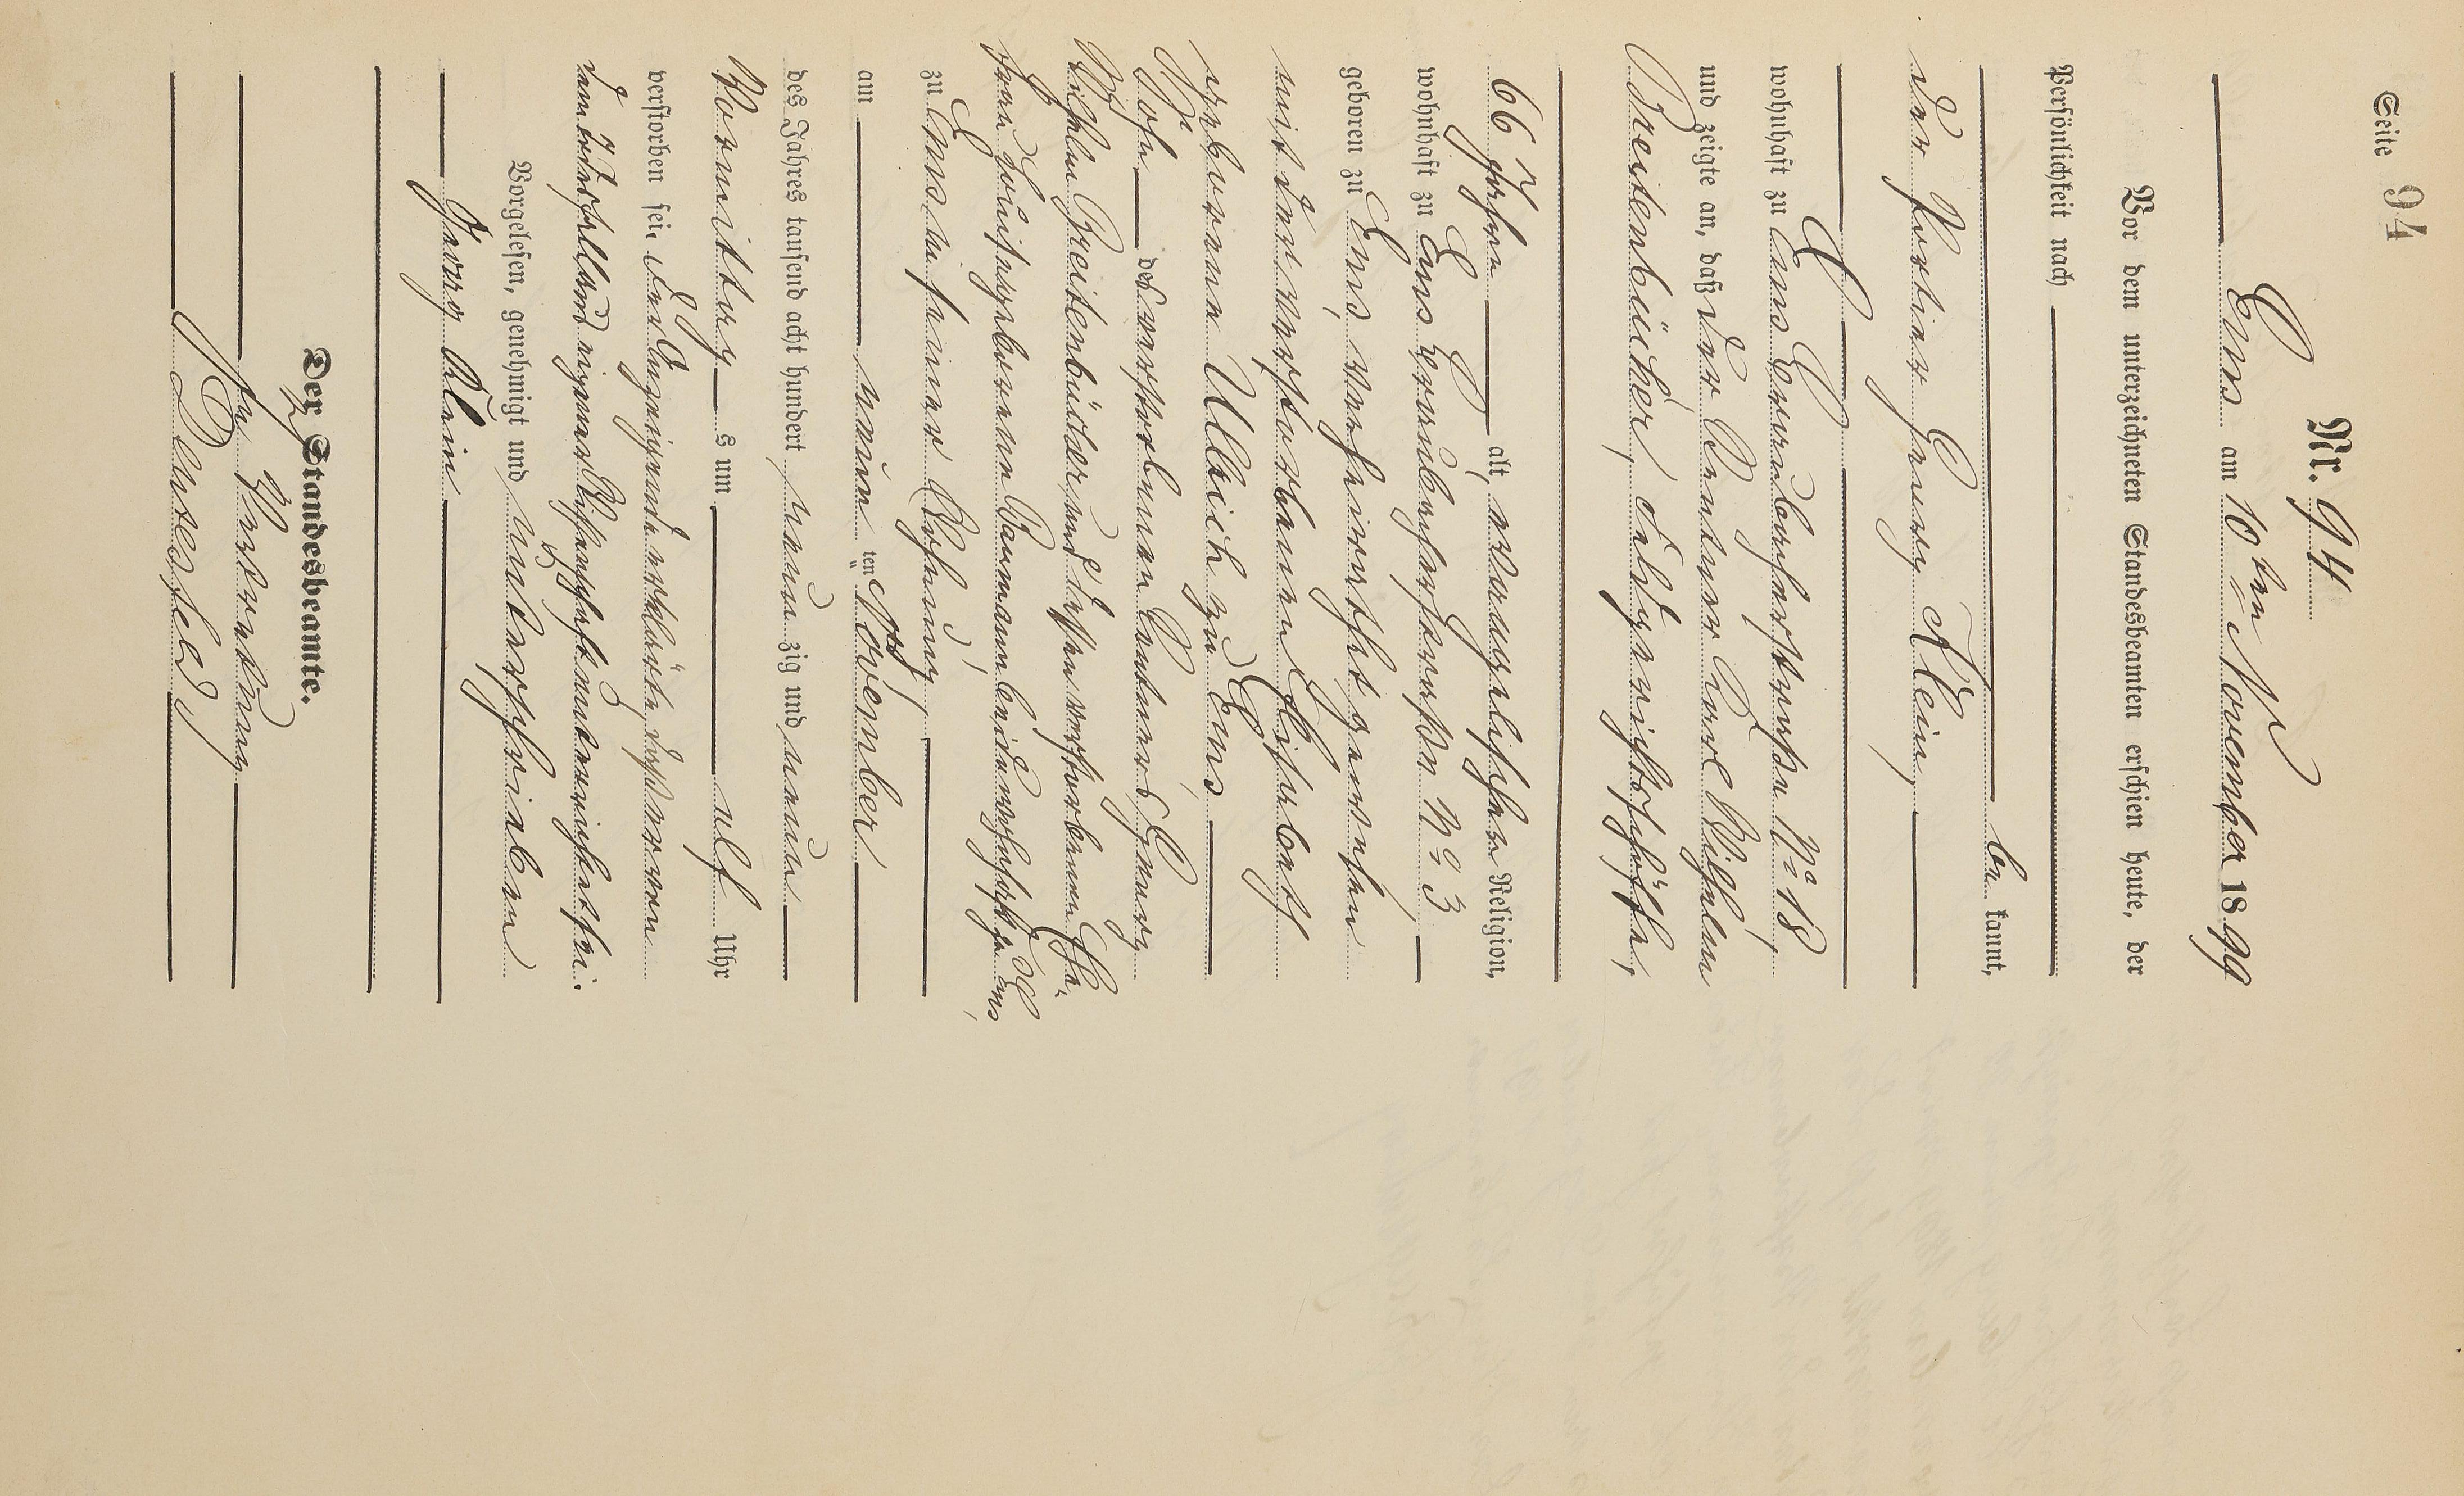 Seite 94
Nr. 94
Ems am 10ten November 1899
Vor dem unterzeichneten Standesbeamten erschien heute, der
Persönlichkeit nach
be kannt,
der Portier Georg Klein,
wohnhaft zu Ems Grabenstraße No 18,
und zeigte an, daß der Rentner Carl Wilhelm
Breitenbücher, Feldgerichtsschöffe,
66 Jahre alt, evangelischer Religion,
wohnhaft zu Ems Grabenstraße No 3
geboren zu Ems, verheirathet gewesen
mit der verstorbenen Elisabeth
geborene Ullrich zu Ems,
Sohn des verstorbenen Rentners Georg
Wilhelm Breitenbücher und dessen verstorbenen Ehe-
frau Louise geborenen Baumann beide wohnhaft zu Ems,
zu Ems in seiner Wohnung,
am neun ten November
des Jahres tausend acht hundert neun zig und neun
Vormittag s um elf Uhr
verstorben sei. Der Anzeigende erklärte, daß er von
dem Sterbefall aus eigener Wissenschaft unterrichtet sei.
Vorgelesen, genehmigt und unterschrieben
Georg Klein
Der Standesbeamte.
In Vertretung